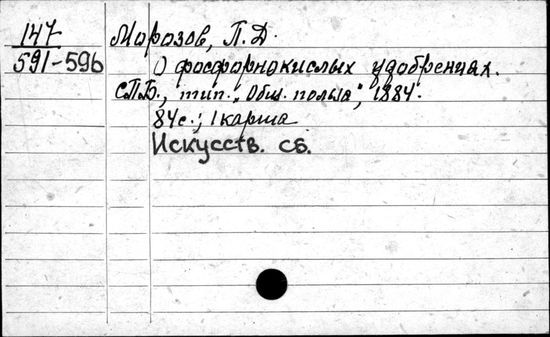 147 Морозов, П. Д.
591-596 О фосфорнокислых удобрениях.
СПБ., тип. „Общ. польза“, 1884.
84 с.; 1 карта
Искусств. сб.